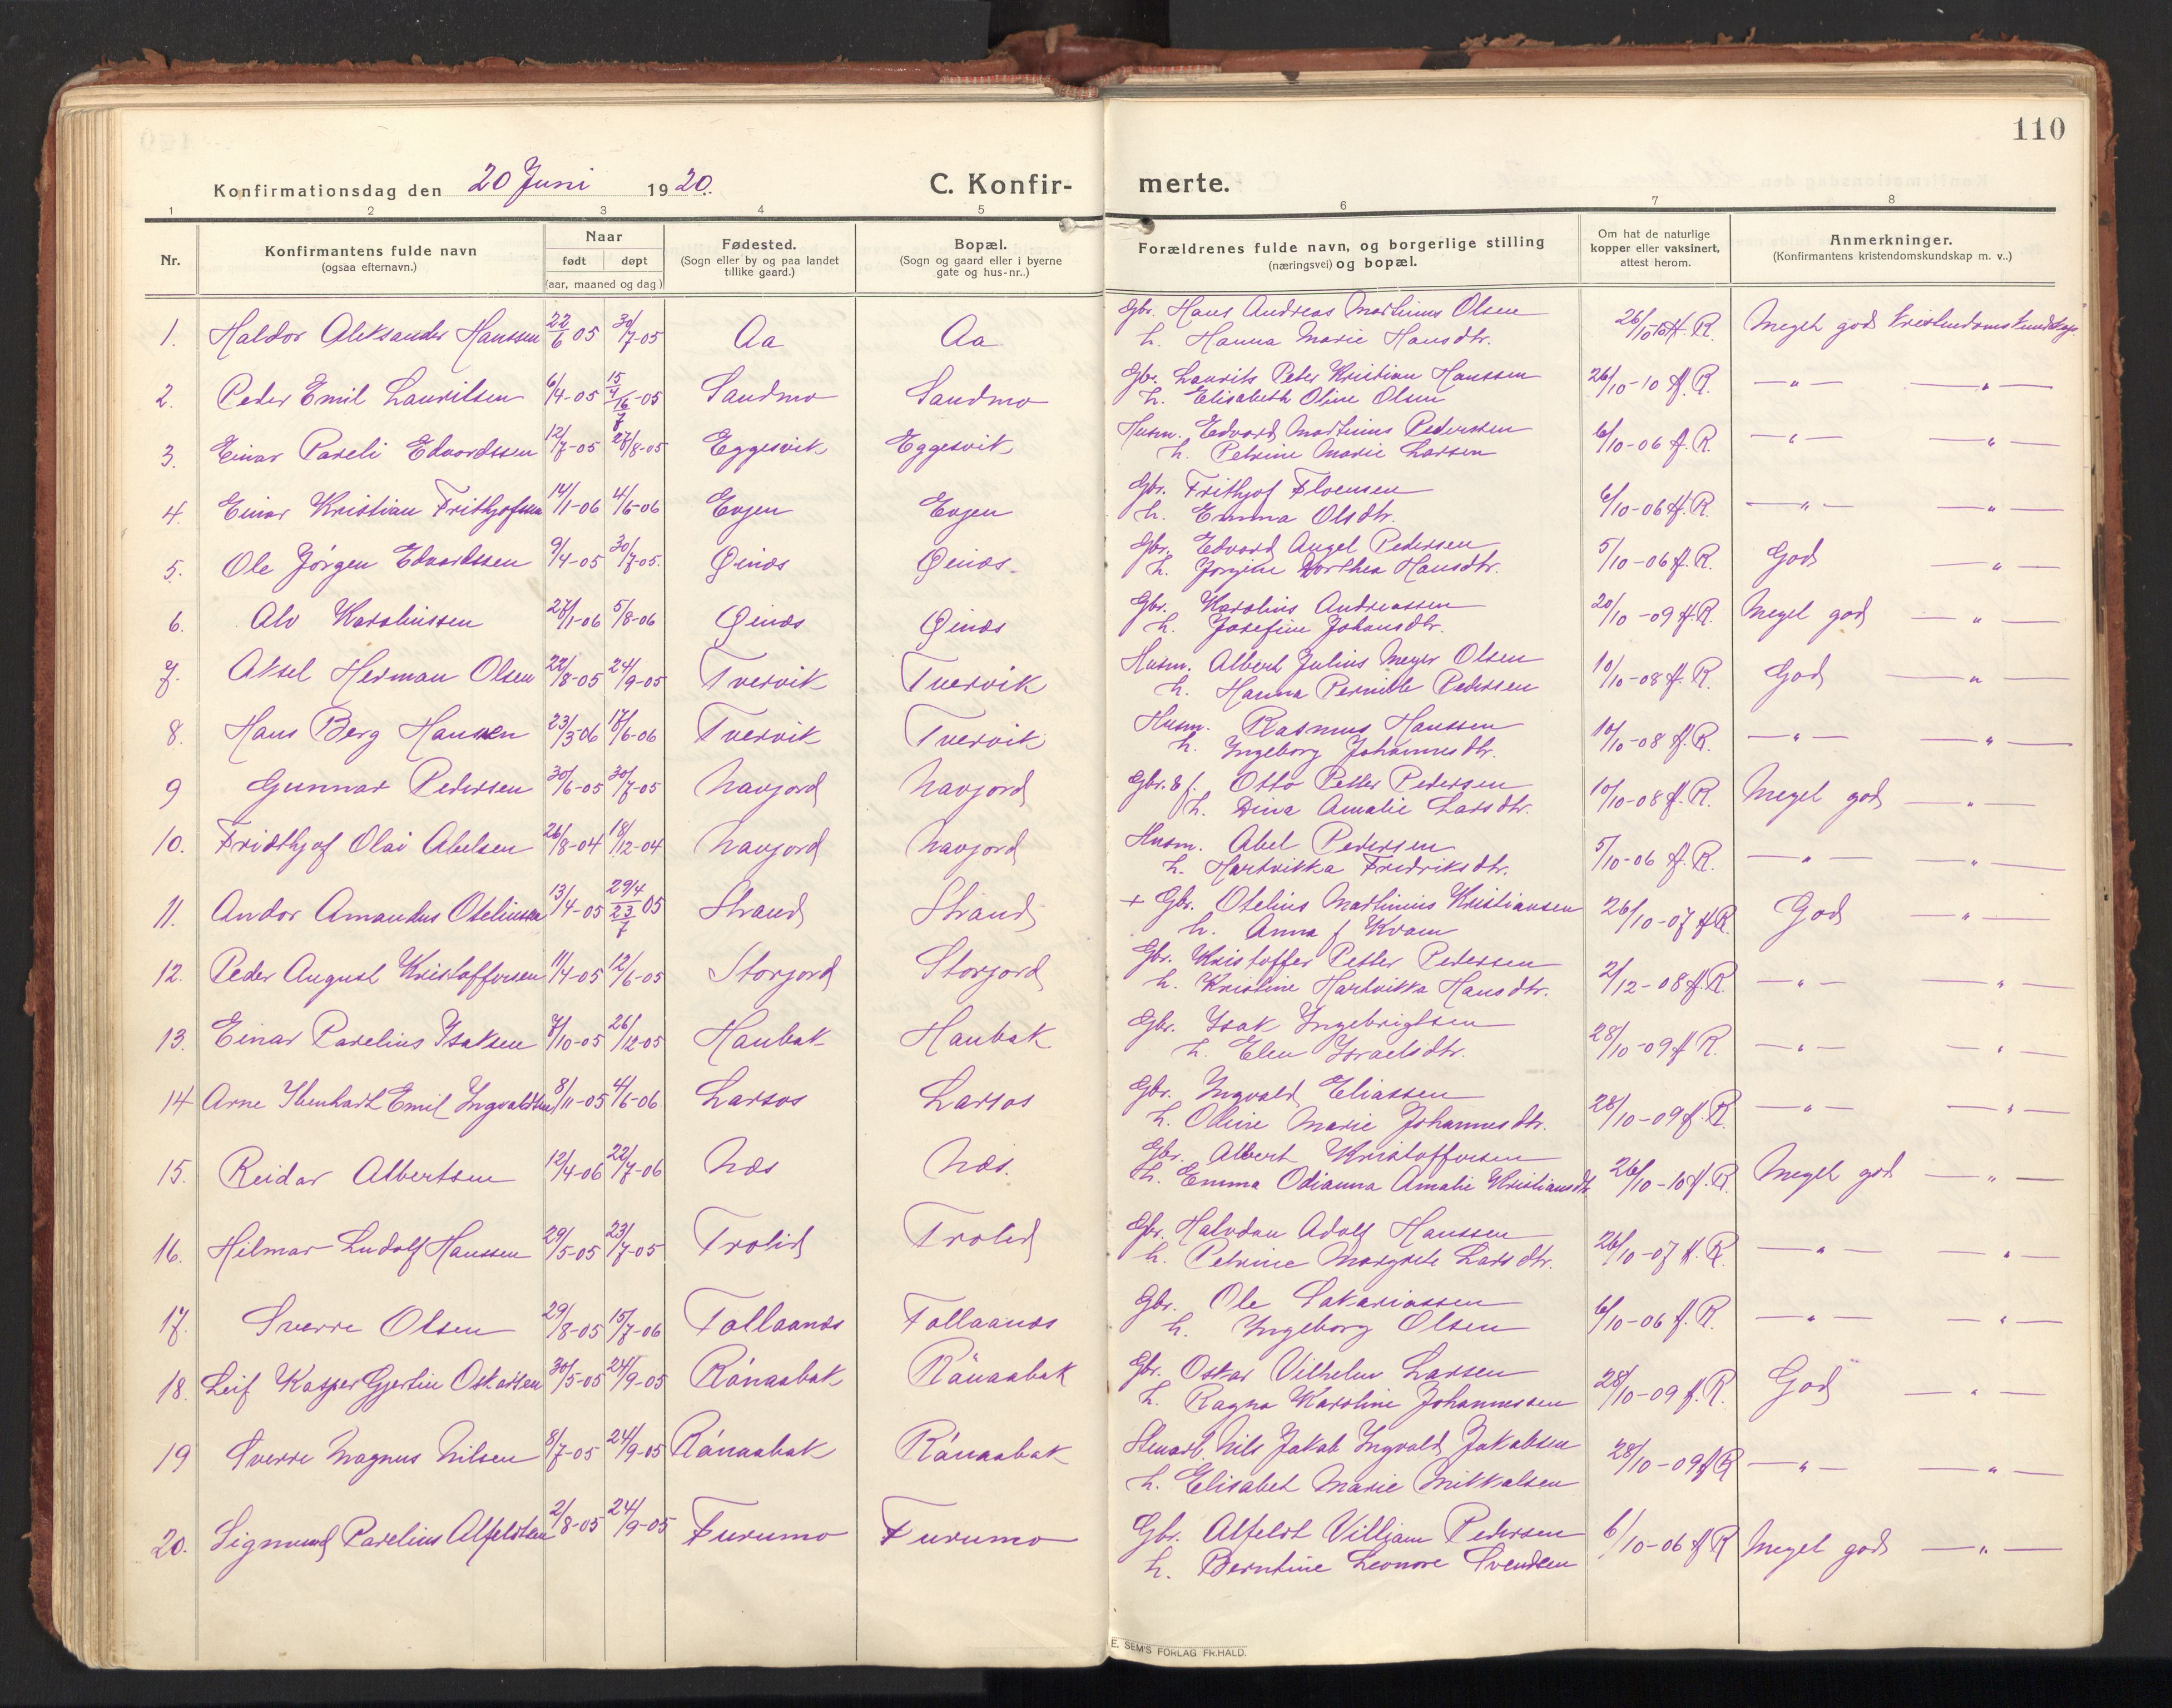 110
Konfirmationsdag den 20 Juni 1920. C. Konfirmerte.
1 2 3 4 5 6 7 8
Nr.
Konfirmantens fulde navn
(ogsaa efternavn.)
Naar
født døpt
(aar, maaned og dag)
Fødested.
(Sogn eller by og paa landet
tillike gaard.)
Bopæl.
(Sogn og gaard eller i byerne
gate og hus-nr..)
Forældrenes fulde navn, og borgerlige stilling
(næringsvei) og bopæl.
Om hat de naturlige
kopper eller vaksinert,
attest herom.
Anmerkninger.
(Konfirmantens kristendomskundskap m. v..)
1. Haldor Aleksander Hanssen 22/6 05 30/7-05 Aa Aa Gbr. Hans Andreas Martinus Olsen
h. Hanna Marie Hansdtr. 26/10-10 A. R. Meget god kristendomskundskap.
2. Peder Emil Lauritsen 6/4-05 15/4 16/7-05 Sandmo Sandmo Gbr. Laurits Peter Kristian Hanssen
h. Elisabeth Oline Olsen 26/10-10 A. R. — " — — " —
3. Einar Pareli Edvardssen 12/7-05 27/8-05 Eggesvik Eggesvik Husm. Edvard Martinus Pederssen
h. Petrine Marie Larsen 6/10-06 A. R. — " — — " —
4. Einar Kristian Frithjofsen 14/1-06 4/6-06 Evjen Evjen Gbr. Frithjof Floensen
h. Emma Olsdtr. 6/10-06 A. R. — " — — " —
5. Ole Jørgen Edvardssen 9/4-05 30/7-05. Øinæs Øinæs. Gbr. Edvard Angel Pedersen
h. Jørgine Dorthea Hansdtr. 5/10-06 A. R. God — " —
6. Alv Karolinssen 27/1-06 5/8-06 Øinæs Øinæs Gbr. Karolius Andreassen
h. Josefine Johansdtr. 20/10-09 A. R. Meget god — " —
7. Aksel Herman Olsen 22/8-05 24/9-05 Tvervik Tvervik Husm. Albert Julius Meyer Olsen
h. Hanna Pernille Pedersen 10/10-08 A. R. God — " —
8. Hans Berg Hansen 23/3-06 17/6-06 Tvervik Tvervik Husm. Rasmus Hanssen
h. Ingeborg Johannesdtr. 10/10-08 A. R. — " — — " —
9 Gunnar Pedersen 30/6-05 30/7-05 Navjord Navjord Gbr. & f. Otto Petter Pedersen
h. Dina Amalie Larsdtr. 10/10-08 A. R. Meget god — " —
10. Fridthjof Olai Abelsen 26/8-04 18/12-04 Navjord Navjord Husm. Abel Pedersen
h. Hartvikka Fredriksdtr. 5/10-06 A. R. — " — — " —
11. Andor Amandus Oteliussen 13/4-05 29/4 23/7 05 Strand Strand + Gbr. Otelius Martinius Kristiansen
h. Anna f Kvam 26/10-07 A R. God — " —
12. Peder August Kristoffersen 11/4-05 12/6-05 Storjord Storjord Gbr. Kristoffer Petter Pedersen
h. Kristine Hartvikka Hansdtr. 2/12-08 A. R. — " — — " —
13. Einar Parelius Isaksen 7/10-05 26/12-05 Haubak Haubak Gbr. Isak Ingebrigtsen
h. Elen Israelsdtr. 28/10-09 A R. — " — — " —
14 Arne Ibenhart Emil Ingvaldsen 8/11-05 4/6-06 Larsos Larsos Gbr. Ingvald Eliassen
h. Oline Marie Johannesdtr. 28/10-09 A. R. — " — — " —
15. Reidar Albertsen 12/4-06 22/7-06 Næs Næs. Gbr. Albert Kristoffersen
h. Emma Odianna Amalie Kristiansdtr. 26/10-10 A. R. Meget god — " —
16. Hilmar Ludolf Hanssen 29/5-05 23/7-05 Trolid Trolid Gbr. Halvdan Adolf Hanssen
h. Petrine Margrete Larsdtr. 26/10-07 A. R. — " — — " —
17. Sverre Olsen 29/8-05 15/7-06 Tollaanæs Tollaanæs Gbr. Ole Sakariassen
h. Ingeborg Olsen 6/10-06 A. R. — " — — " —
18. Leif Kasper Gjertin Oskarsen 30/5-05 24/9-05 Rånaabak Rånaabak Gbr. Oskar Vilhelm Larsen
h. Ragna Karoline Johannessen 28/10-09 A. R. God — " —
19 Sverre Magnus Nilsen 8/7-05 24/9-05 Rånaabak Rånaabak Stuert. Nils Jakob Ingvald Jakobsen
h. Elisabet Marie Mikkalsen 28/10-09 A R — " — — " —
20. Sigmund Parelius Alfeldtsen 2/8-05 24/9-05 Furumo Furumo Gbr. Alfeldt Villjam Pedersen
h. Berntine Leonore Svendsen 6/10-06 A R Meget god — " —
E. SEM'S FORLAG FR.HALD.